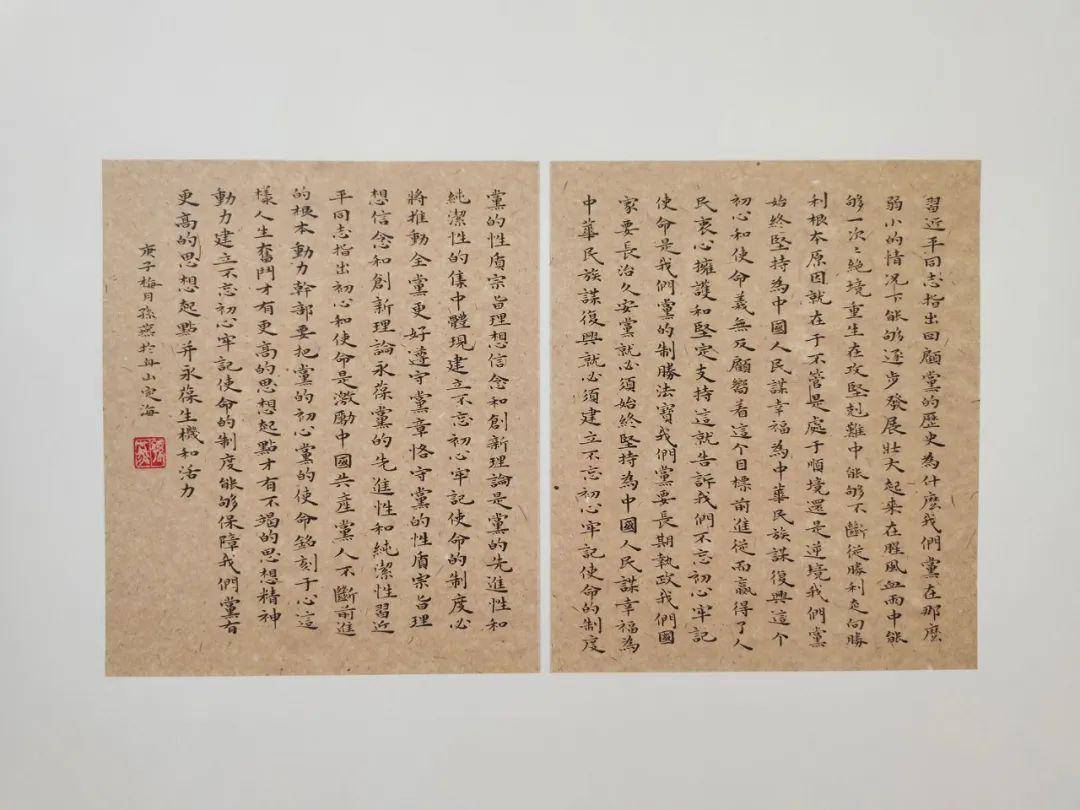 習近平同志指出回顧黨的歷史為什麼我們黨在那麼
弱小的情況下能够逐步發展壯大起来在腥風血雨中能
够一次〻絕境重生在攻堅剋難中能够不斷從勝利走向勝
利根本原因就在于不管是處于順境還是逆境我們黨
始終堅持為中國人民謀幸福為中華民族謀復興這个
初心和使命義無反顧嚮着這个目標前進從而贏得了人
民衷心擁護和堅定支持這就告訴我們不忘初心牢記
使命是我們黨的制勝法寶我們黨要長期執政我們國
家要長治久安黨就必須始終堅持為中國人民謀幸福為
中華民族謀復興就必須建立不忘初心牢記使命的制度
黨的性質宗旨理想信念和創新理論是黨的先進性和
純潔性的集中體現建立不忘初心牢記使命的制度必
將推動全黨更好遵守黨章恪守黨的性質宗旨理
想信念和創新理論永葆黨的先進性和純潔性習近
平同志指出初心和使命是激勵中國共產黨人不斷前進
的根本動力幹部要把黨的初心黨的使命銘刻于心這
樣人生奮鬥才有更高的思想起點才有不竭的思想精神
動力建立不忘初心牢記使命的制度能够保障我們黨有
更高的思想起點并永葆生機和活力
庚子梅月孫燕於舟山定海